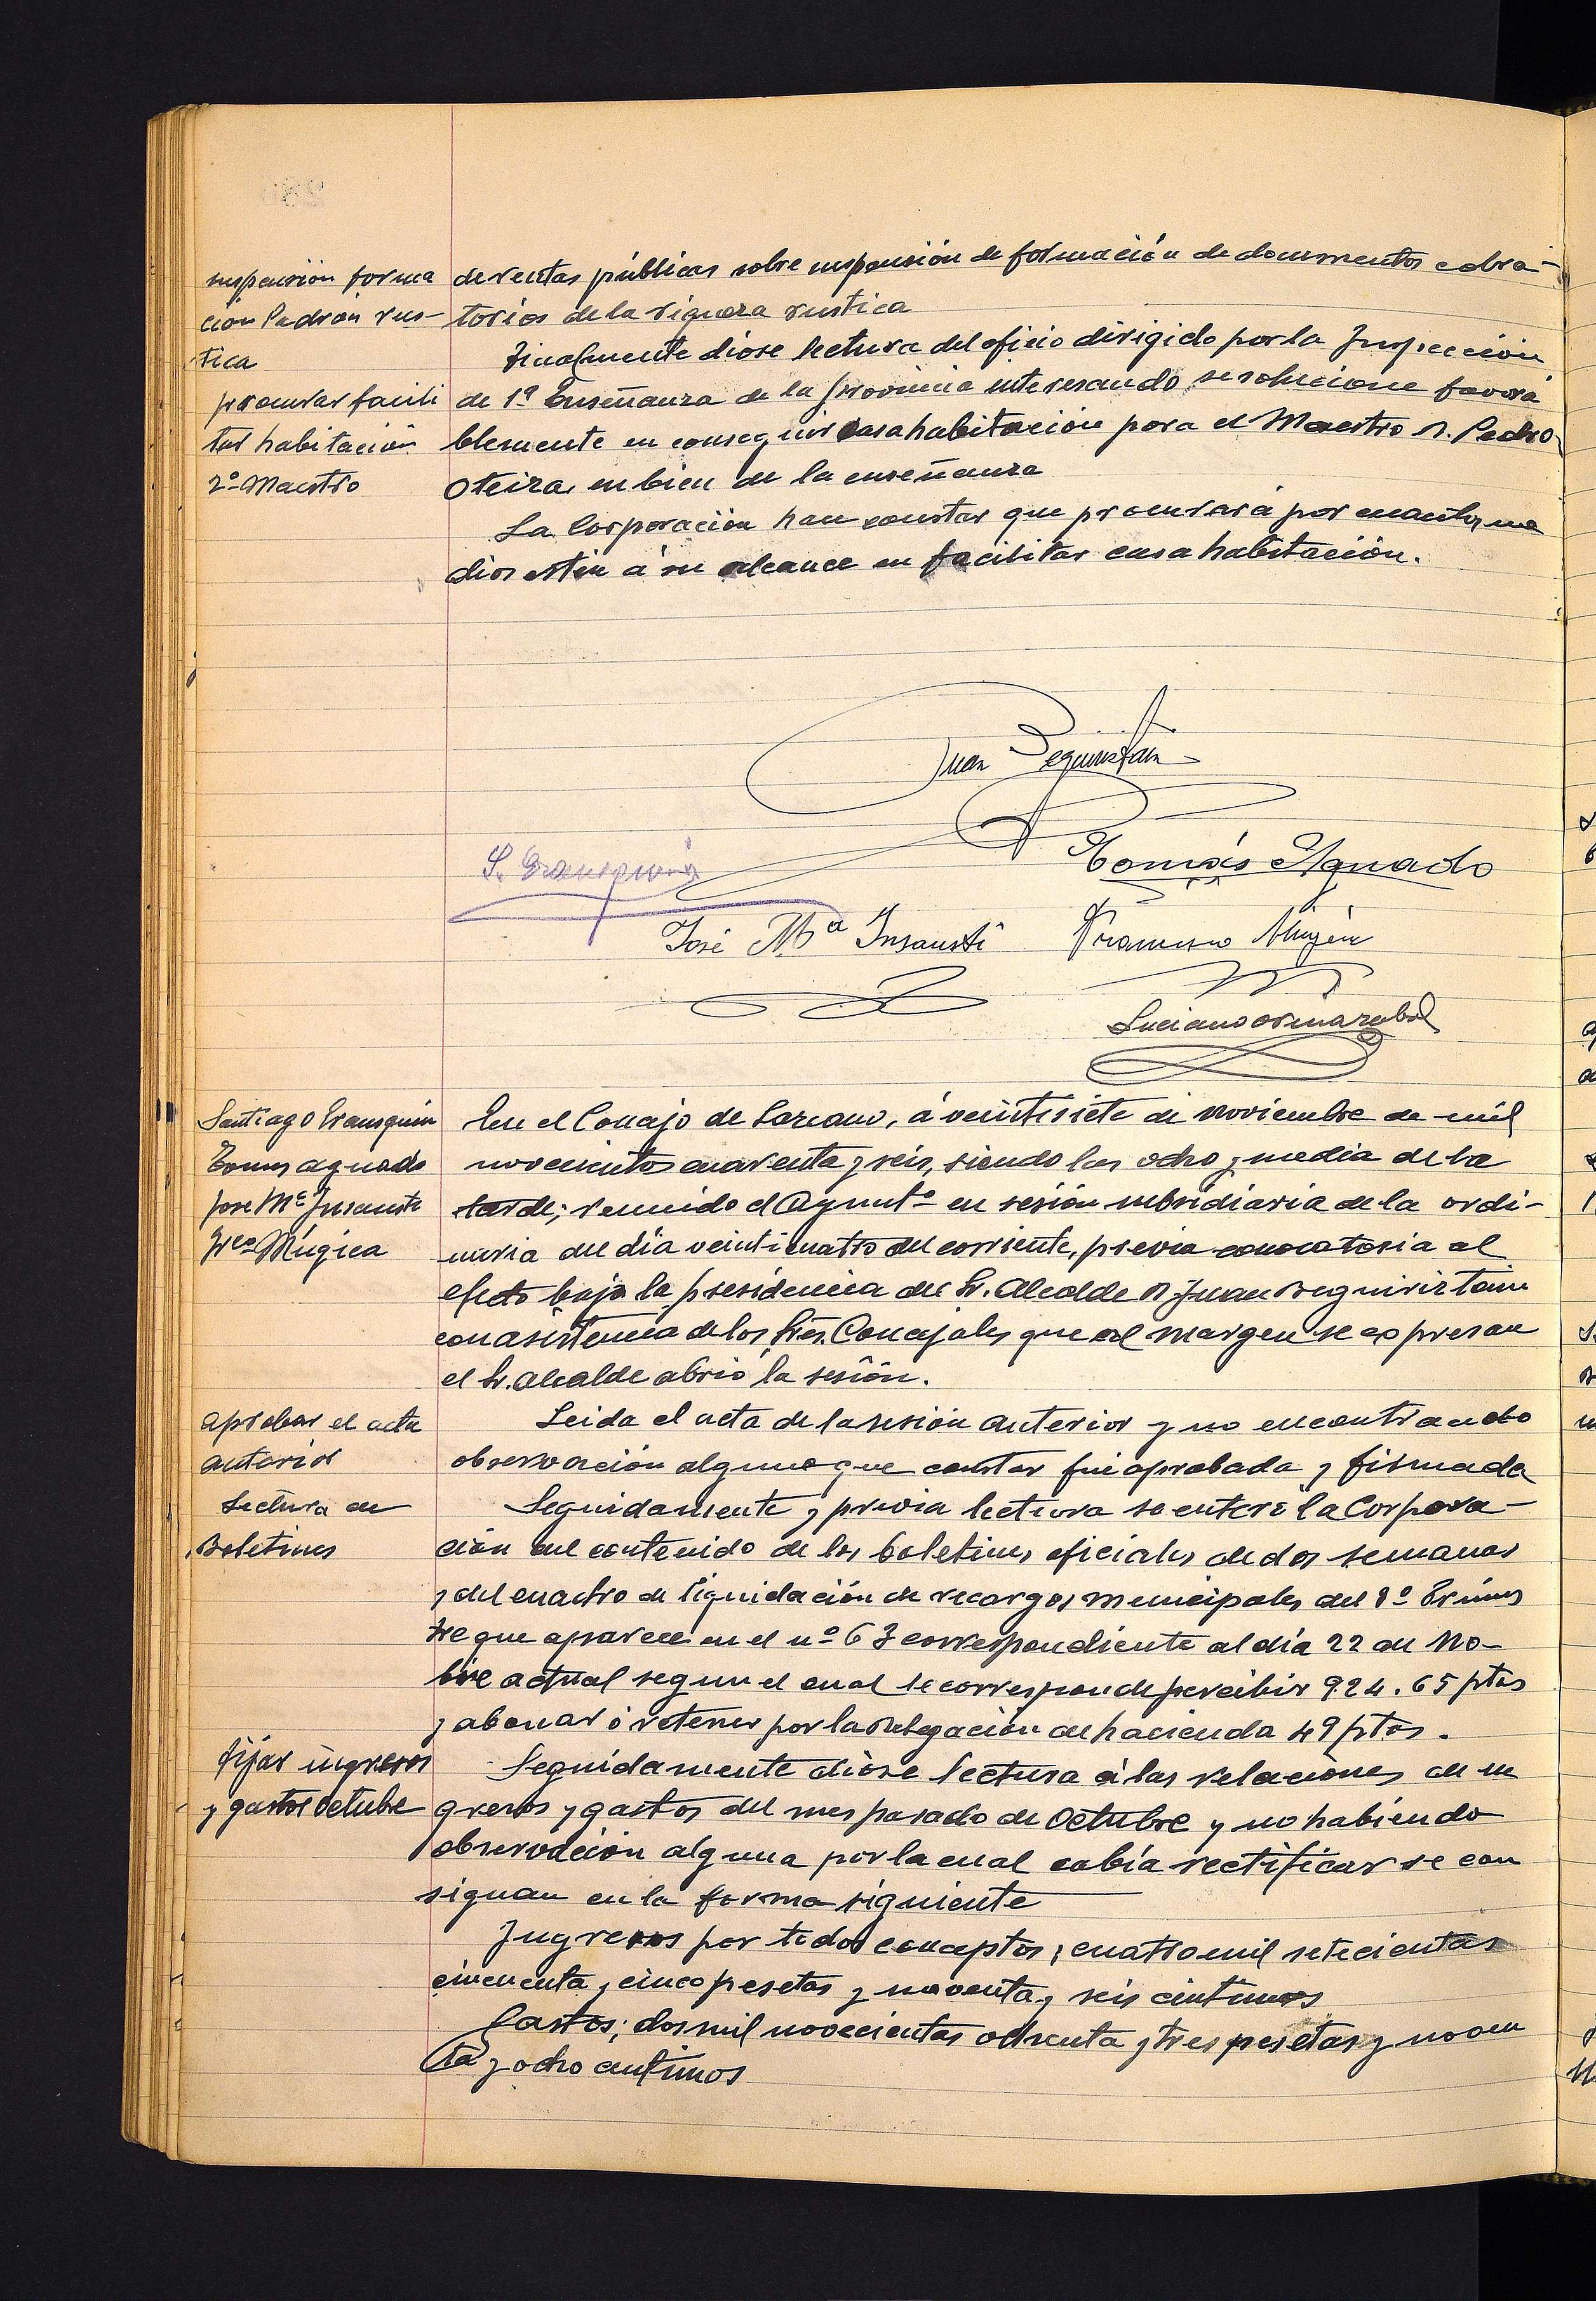 suspensión forma
ción Padrón rus-
tica
procurar facili
tar habitación
2º Maestro
de rentas públicas sobre suspensión de formación de documentos cobra-
torios de la riqueza rustica
Finalmente diose lectura del oficio dirigido por la Inspección
de 1ª Enseñanza de la provincia interesando se solucione favora
blemente en conseguir casa habitación para el Maestro D. Pedro
Oteiza, en bien de la enseñanza
La Corporación hace constar que procurará por cuantos me
dios estén á su alcance en facilitar casa habitación.
Juan Beguiristain
Tomás Aguado
José Mª Insausti
Francisco Mugica
Luciano Ormazabal
Santiago Eransquin
Tomas Aguado
Jose Mª Insausti
Frco Múgica
En el Concejo de Lazcano, á veintisiete de noviembre de mil
novecientos cuarenta y seis, siendo las ocho y media de la
tarde; reunido el Ayuntº en sesión subsidiaria de la ordi-
naria del día veinticuatro del corriente, previa convocatoria al
efecto bajo la presidencia del Sr. Alcalde D Juan Beguiristain
con asistencia de los Sres. Concejales que al margen se expresan
el Sr. Alcalde abrió la sesión.
aprobar el acta
anterior
Leida el acta de la sesión anterior y no encontrando
observación alguna que constar fué aprobada y firmada
Lectura de
Boletines
Seguidamente y previa lectura se enteró la Corpora-
ción del contenido de los boletines oficiales de dos semanas
y del cuadro de liquidación de recargos municipales del
tre que aparece en el nº 63 correspondiente al día 22 de No-
bre actual segun el cual le corresponde percibir 924.65 ptas
y abonar ó retener por la Delegación de hacienda 49 ptas.
fijar ingresos
y gastos Octubre
Seguidamente diose lectura á las relaciones de in
gresos y gastos del mes pasado de Octubre y no habiendo
observación alguna por la cual cabía rectificar se con
signan en la forma siguiente
Ingresos por todos conceptos; cuatro mil setecientas
cincuenta y cinco pesetas y noventa y seis centimos
Gastos; dos mil novecientas ochenta y tres pesetas y noven
ta y ocho centimos